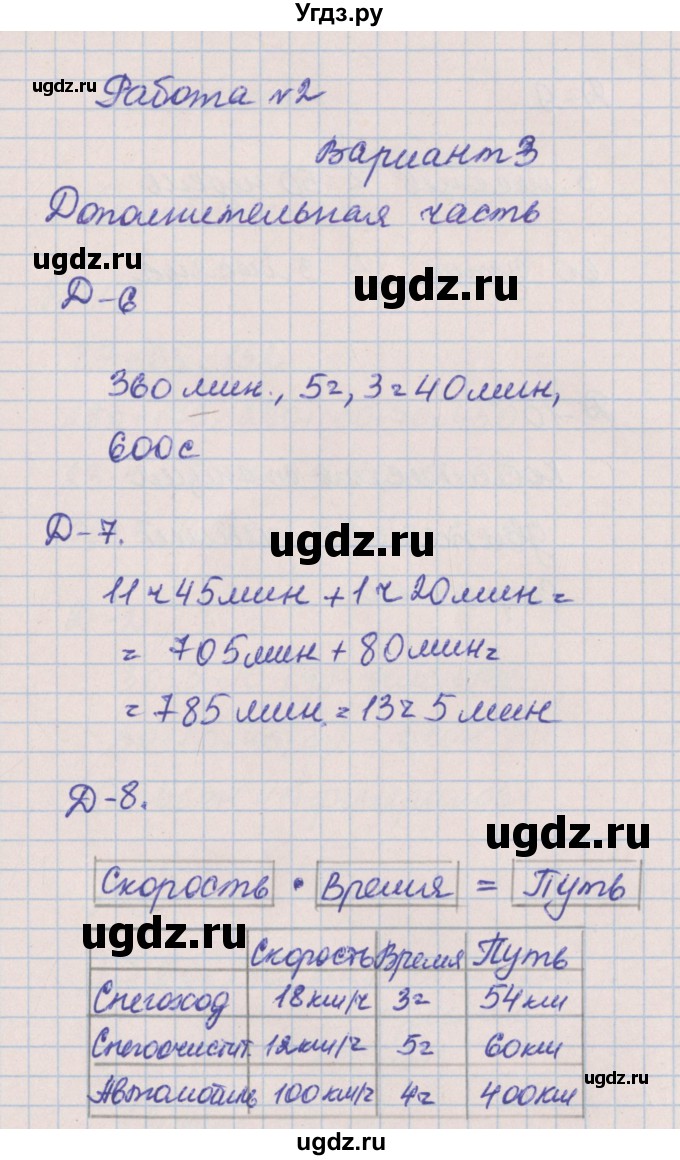 Угдз.ру
ugdz.ru
Работа №2
Вариант 3
Дополнительная часть
ugdz.ru
ugdz.ru
Д-6
360 мин., 5ч, 3ч 40мин,
600с
ugdz.ru
Д-7.
11ч 45мин + 1ч 20мин =
= 705мин + 80мин =
= 785 мин. = 13ч 5 мин
Д-8.
ugdz.ru
Скорость · Время = Путь
ugdz.ru
Скорость Время Путь
Снегоход 18км/ч 3ч 54км
Снегоочистит. 12км/ч 5ч 60км
Автомобиль 100км/ч 4ч 400км
ugdz.ru
ugdz.ru